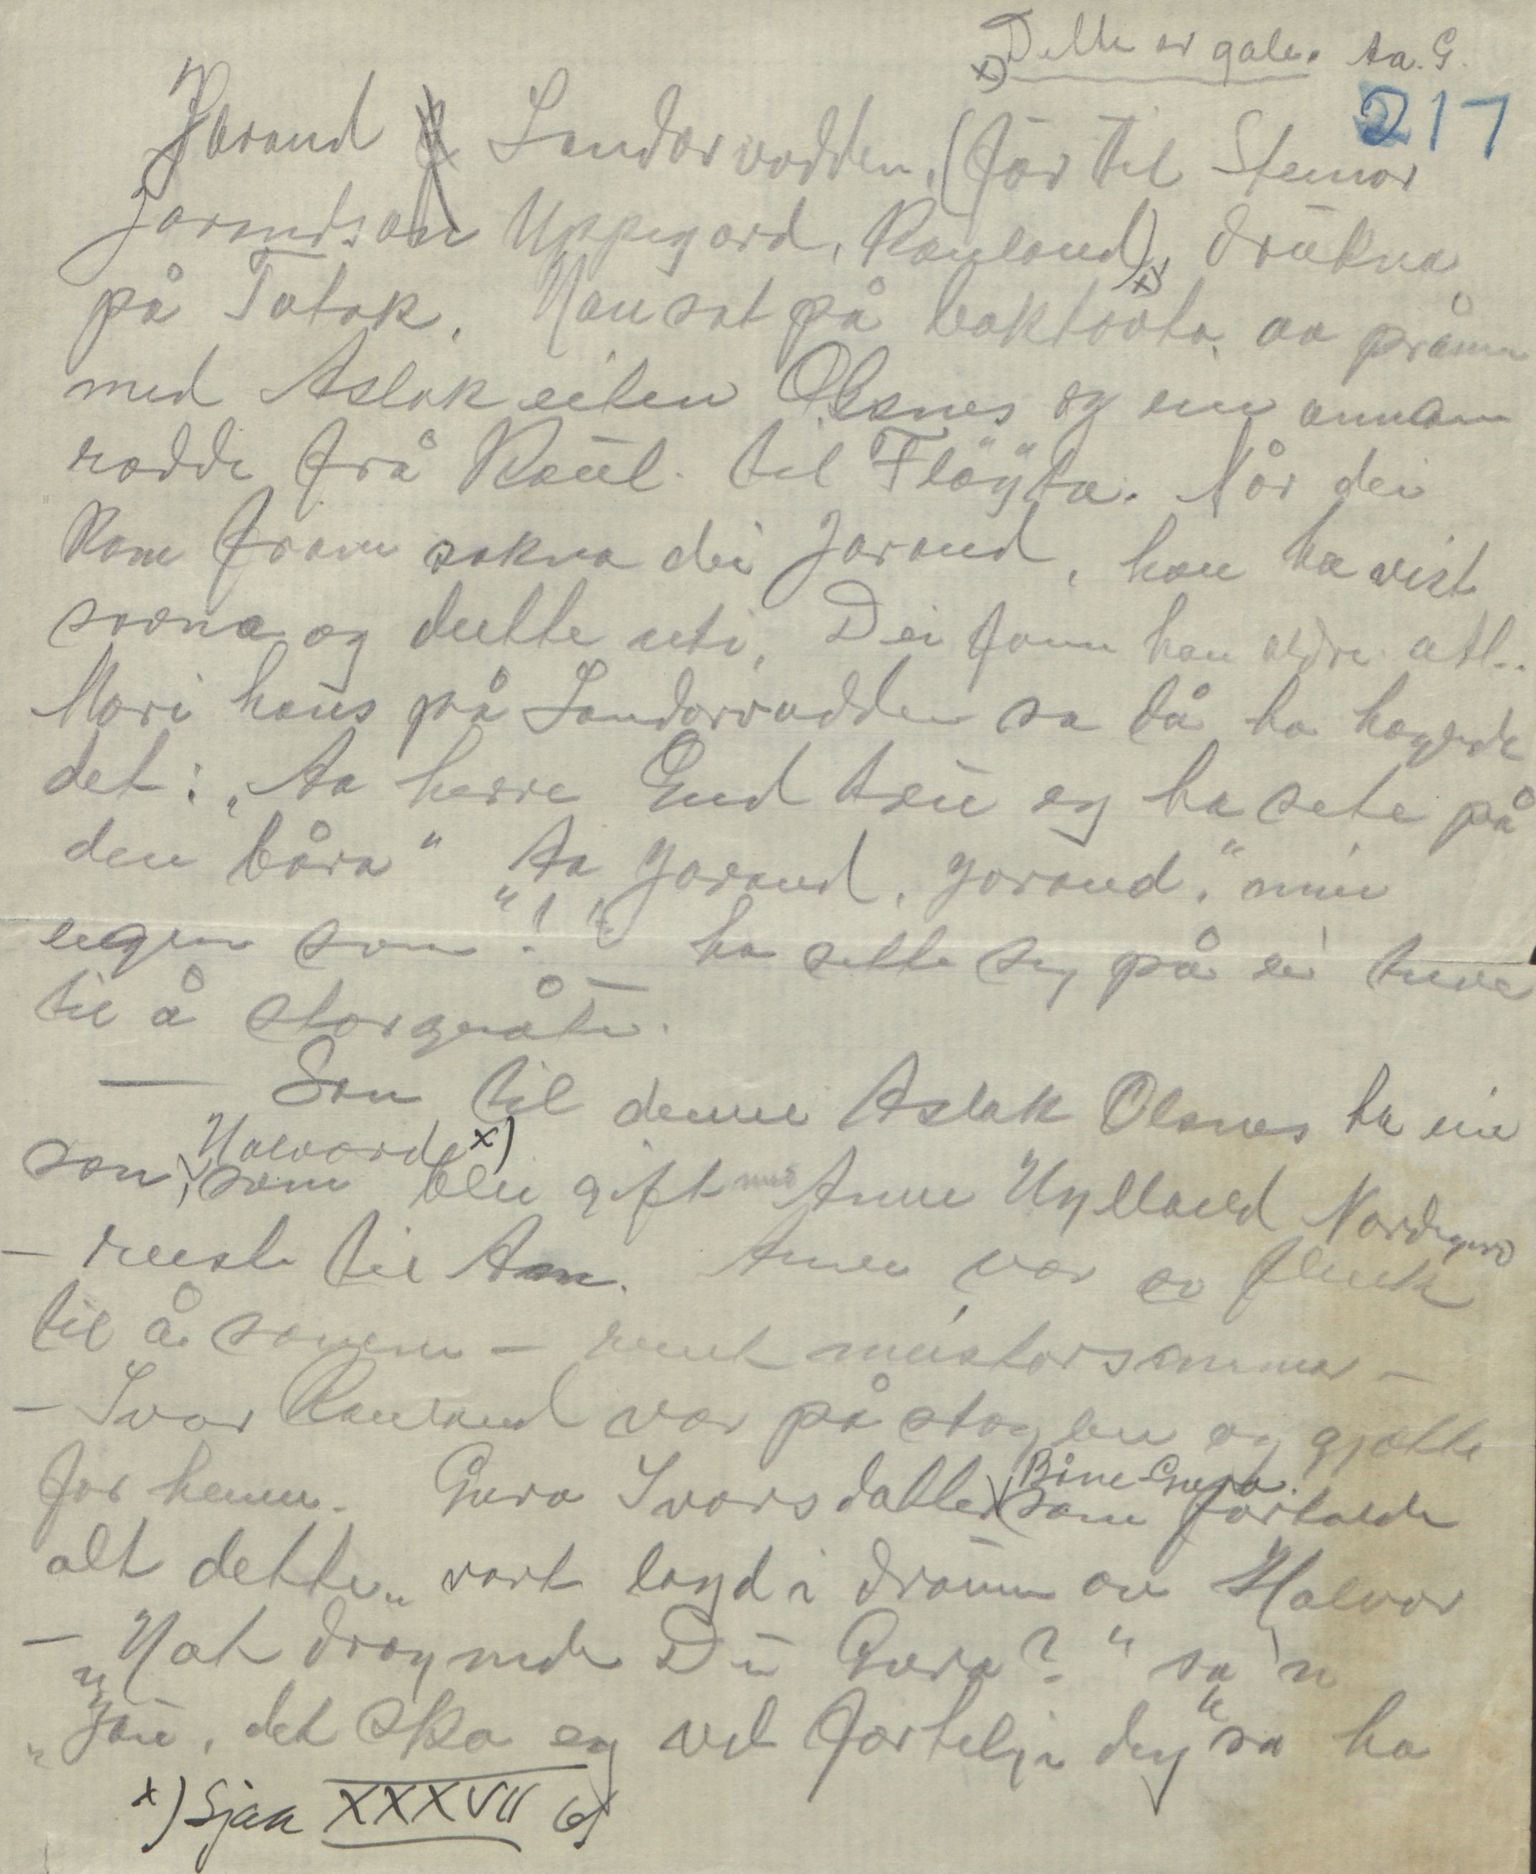 x) Dette er gale. Aa. G.
217
Jorand Sandarvodden, (far til Steinar
Jorandson Uppigard, Rauland) x), drukna
på Totak. Han sat på baktofta aa pråmen
med Aslak eiten Olsnes og ein annan
rodde frå Raul. til Fløyta. Når dei
kom fram sakna dei Jorand, han ha vist
sovna og dutte uti, Dei fann han aldri att..
Mori hans på Sandarvodden sa då ho høyrde
det: "Aa herre Gud trur eg ha sete på
den båra" "Aa, Jorand, Jorand," min
eigen son"! ho sette seg på ei tuve
til å storgråte.
— Son til denne Aslak Olsnes ha ein
son, Halvord x) som blei gift med Anne Hylland Nordigard
– reiste til Am. Anne var so flink
til å saume – reint meistersaumar –
– Ivar Rauland var på stoylen og gjætte
for henne. Guro Ivarsdatter (Bine-Guro. som fortalde
alt dette, vart lagd i draum av Halvor
– "Hat drøymde Du Guro?" sa 'n
"Jau, det ska eg vel fortelja deg" sa ho
x) Sjaa XXXVII 6)